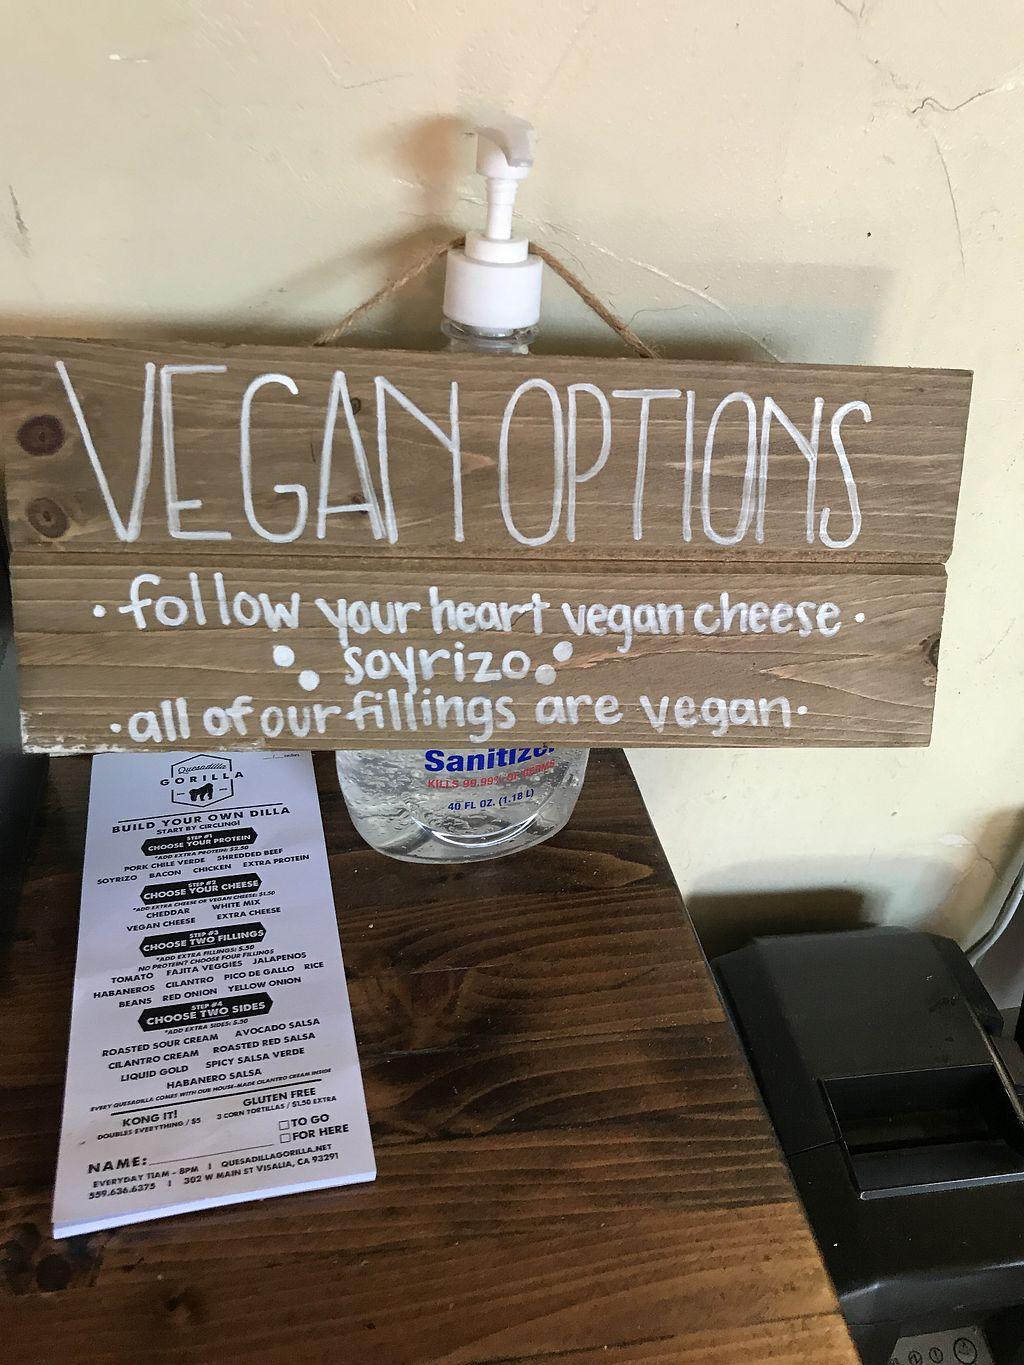 VEGAN OPTIONS
• follow your heart vegan cheese •
soyrizo
• all of our fillings are vegan •
Sanitizer
KILLS 99.99% OF GERMS
40 FL OZ. (1.18 L)
Quesadilla
GORILLA
BUILD YOUR OWN DILLA
START BY CIRCLING!
STEP #1
CHOOSE YOUR PROTEIN
*ADD EXTRA PROTEIN: $2.50
PORK CHILE VERDE SHREDDED BEEF
SOYRIZO BACON CHICKEN EXTRA PROTEIN
STEP #2
CHOOSE YOUR CHEESE
*ADD EXTRA CHEESE OR VEGAN CHEESE: $1.50
CHEDDAR WHITE MIX
VEGAN CHEESE EXTRA CHEESE
STEP #3
CHOOSE TWO FILLINGS
*ADD EXTRA FILLINGS: $.50
NO PROTEIN? CHOOSE FOUR FILLINGS
TOMATO FAJITA VEGGIES JALAPENOS
HABANEROS CILANTRO PICO DE GALLO RICE
BEANS RED ONION YELLOW ONION
STEP #4
CHOOSE TWO SIDES
*ADD EXTRA SIDES: $.50
ROASTED SOUR CREAM AVOCADO SALSA
CILANTRO CREAM ROASTED RED SALSA
LIQUID GOLD SPICY SALSA VERDE
HABANERO SALSA
EVERY QUESADILLA COMES WITH OUR HOUSE-MADE CILANTRO CREAM INSIDE
KONG IT! GLUTEN FREE
DOUBLES EVERYTHING / $5 3 CORN TORTILLAS / $1.50 EXTRA
TO GO
FOR HERE
NAME:
EVERYDAY 11AM - 8PM | QUESADILLAGORILLA.NET
559.636.6375 | 302 W MAIN ST VISALIA, CA 93291